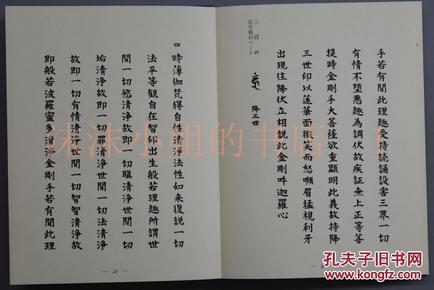 手若有聞此理趣受持讀誦設害三界一切
有情不墮惡趣為調伏故疾証無上正等菩
提時金剛手大菩薩欲重顯明此義故持降
三世印以蓮華面微笑而怒顰眉猛視利牙
出現住降伏立相說此金剛吽迦羅心
降三世
三段鈔
四時薄伽梵得自性清淨法性如來復說一切
法平等觀自在智印出生般若理趣所謂世
間一切慾清淨故即一切瞋清淨世間一切
垢清淨故即一切罪清淨世間一切法清淨
故即一切有情清淨世間一切智智清淨故
即般若波羅蜜多清淨金剛手若有聞此理
— 21 —
妹妹小姐的书店
孔夫子旧书网